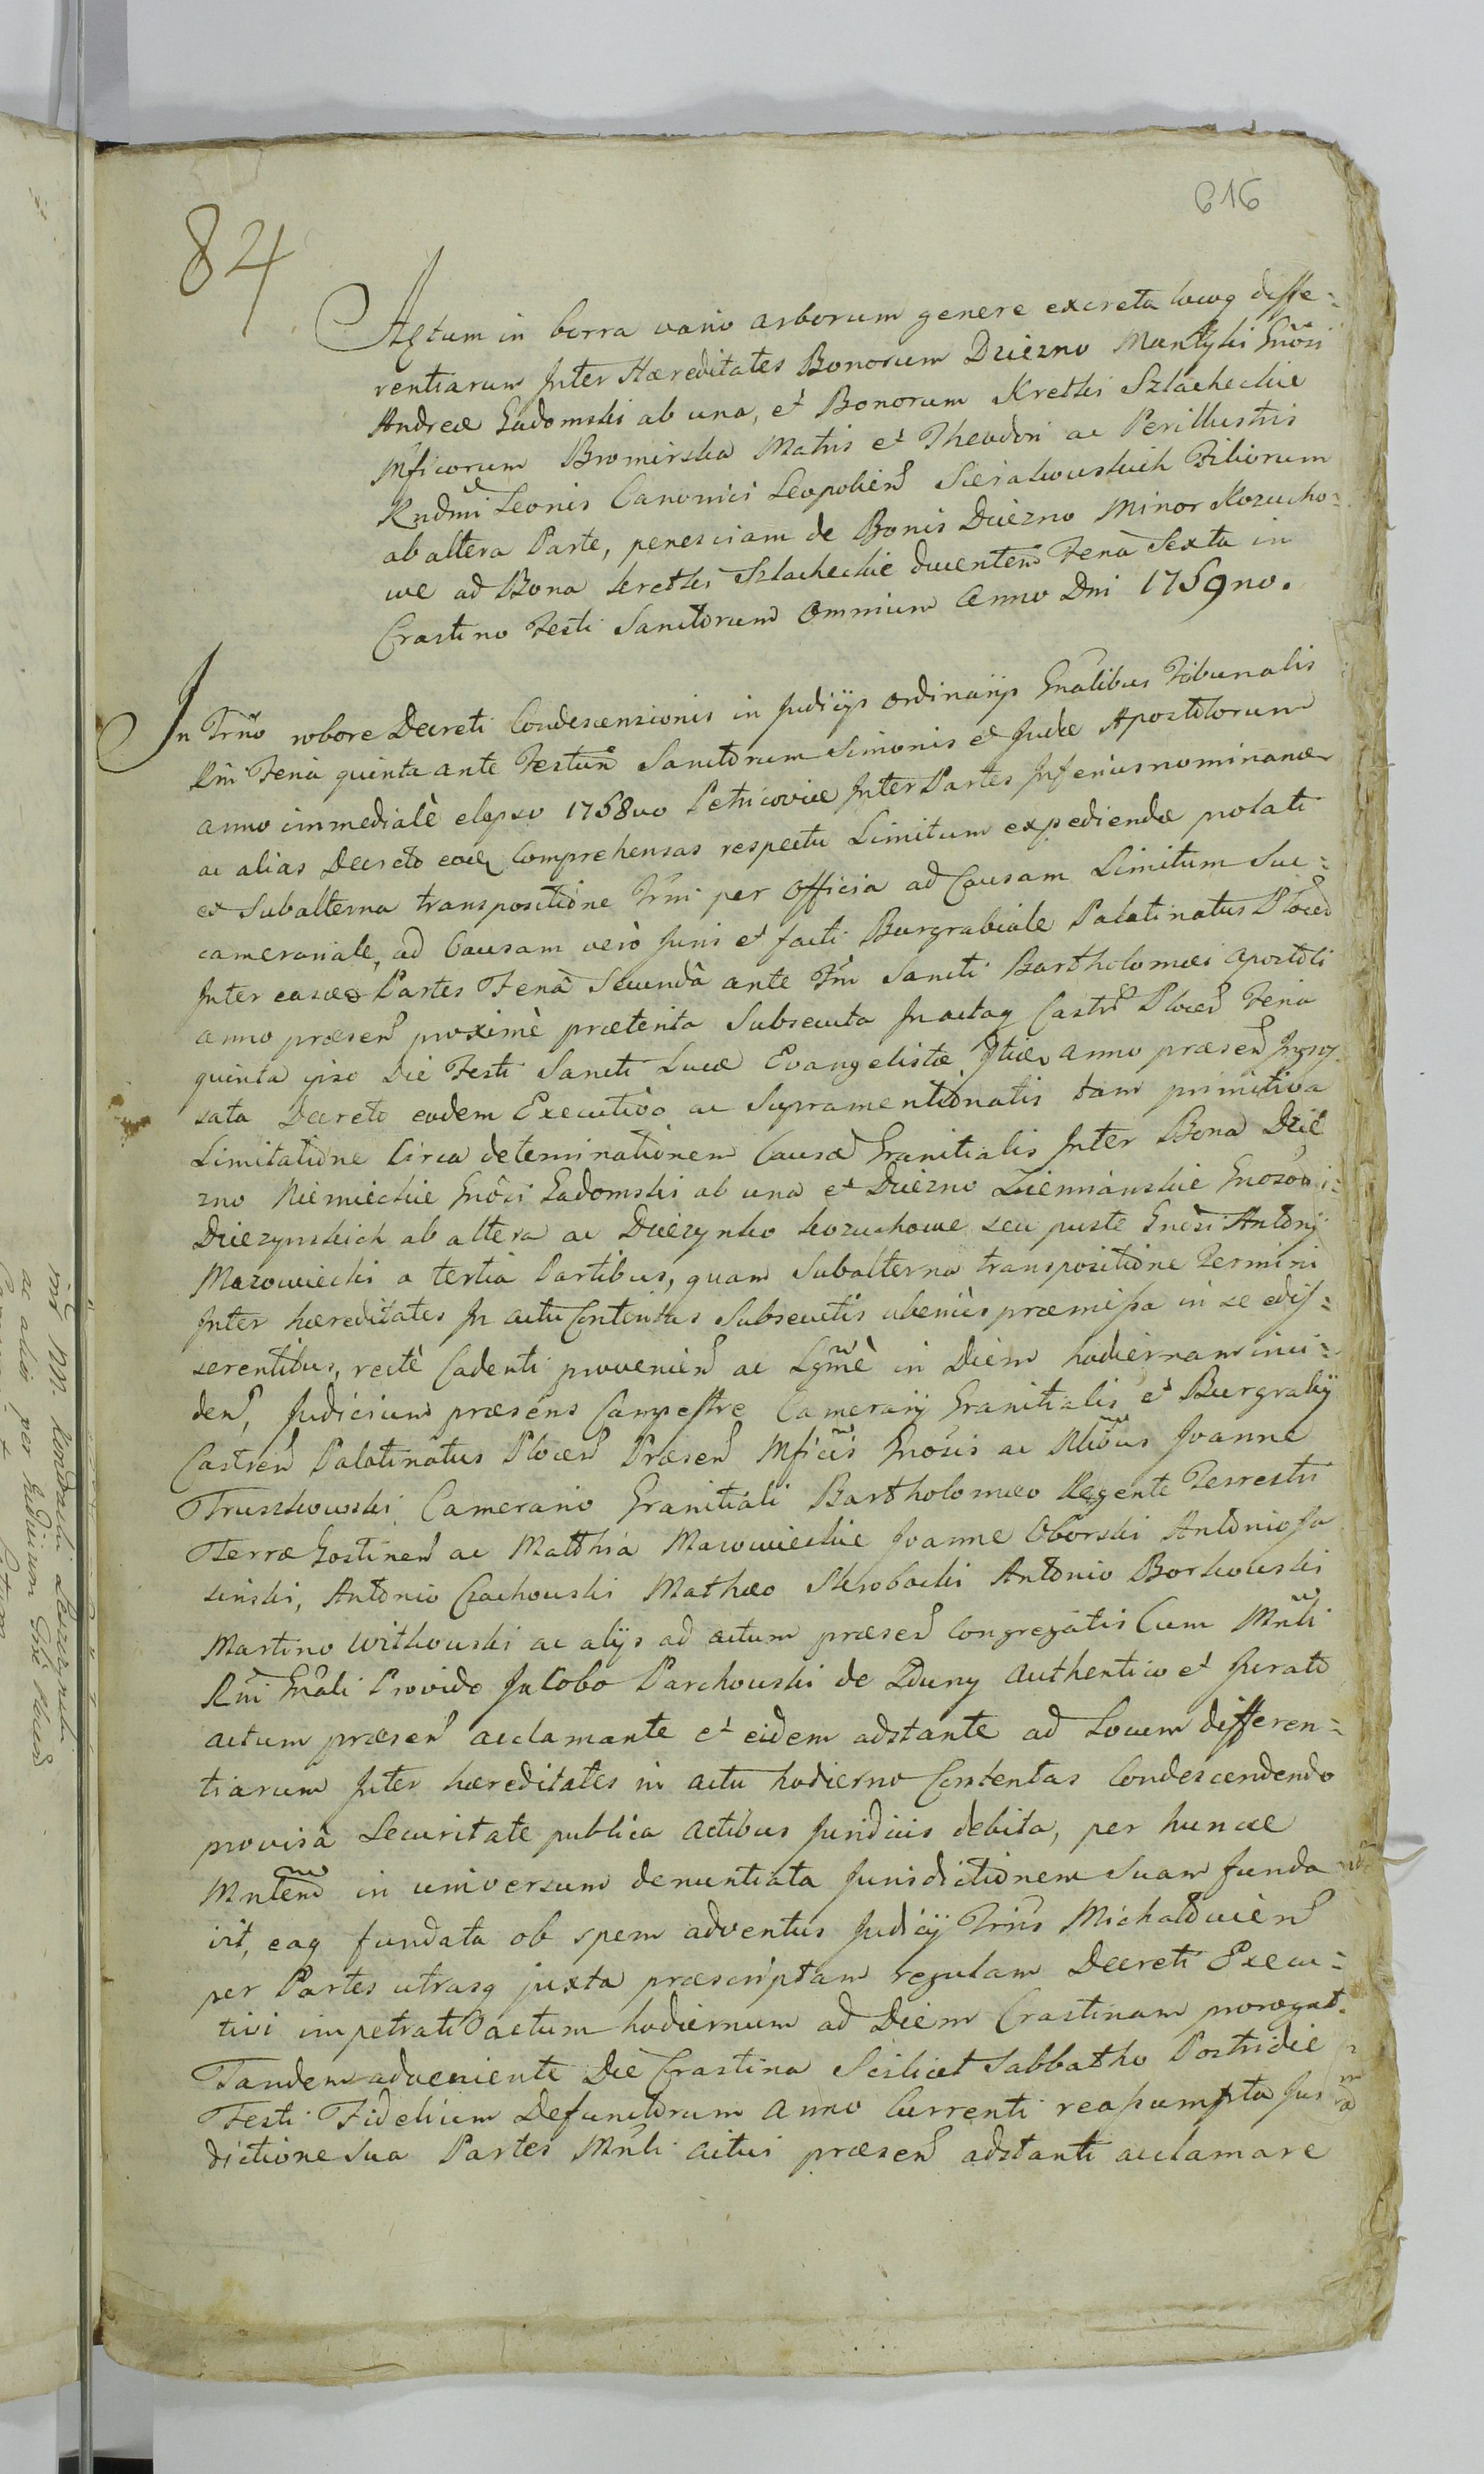 616
84
Actum in borra vario arborum genere excreta locoq diffe=
rentiarum Inter Hæreditates Bonorum Dziezno Mentzki Gnõsi
Andreæ Gadomski ab una, et Bonorum Kretki Szlacheckie
Mficorum Bromirska Matris et Theodori ac Perillustris
Rndmi Leonis Canonici Leopolien Sierakowskich Filiorum
ab altera Parte, penes viam de Bonis Dziezno Minor Kozucho=
we ad Bona Kretki Szlacheckie ducentem Feria Sexta in
Crastino Festi Sanctorum Omnium Anno Dni 1759no.
In Trno robore Decreti Condescensionis in Judicijs Ordinarijs Gnalibus Tribunalis
Rni Feria quinta ante Festum Sanctorum Simonis et Judæ Apostolorum
anno immediatè elapso 1758vo Petricoviæ Inter Partes Inferius nominanæ
ac alias Decreto eoq Comprehensas respectu Limitum expediendæ prolati
et Subalterna transpositione Trni per Officia ad Causam Limitum Suc=
camerariale, ad Causam verò Juris et facti Burgrabiale Palatinatus Plocen
Inter easdæ Partes Feriâ Secundâ ante Fm Sancti Bartholomæi Apostoli
anno præsen proximè præterita Subsecuta In actaq Castr Plocen Feria
quinta ipso Die Festi Sancti Lucæ Evangelistæ anno præsen Ingros
sata Decreto eodem Executivo ac Supramentionatis tam primitiva
Limitatione Circa determinationem Causæ Granitialis Inter Bona Dzie
zno Niemieckie Gnõsi Gadomski ab una et Dziezno Ziemianskie Gnosor
Dziezynskich ab altera ac Dziezynko Kozuchowe seu puste Gnosi Antonij
Mazowiecki a tertia Partibus, quam Subalterna transpositione Termini
Inter hæreditates In actu Contentas Subsecutis uberius præmissa in se edis=
serentibus, rectè Cadenti provenien ac Lgmè in Diem hodiernam inci=
den, Judicium præsens Campestre Camerarij Granitialis et Burgrabij
Castren Palatinatus Plocen Præsen Mficis Gnosis ac Nlibus Joanne
Truszkowski Camerario Granitiali Bartholomæo Regente Terrestri
Terræ Gostinen ac Matthia Mazowieckie Joanne Oborski Antonio Ja
sinski, Antonio Czachowski Mathæo Skrobacki Antonio Borkowski
Martino Witkowski ac alijs ad actum præsen Congregatis Cum Mnli
Rni Gnali Provido Jacobo Parchowski de Zduny Authentico et Jurato
actum præsen acclamante et eidem adstante ad Locum differen=
tiarum Inter hæreditates in actu hodierno Contentas Condescendendo
provisa Securitate publica Actibus Juridicis debita, per huncce
Mnlem in universum denuntiata Jurisdictionem Suam funda
vit, eaq fundata ob spem adventus Judicij Trnis Michalovien
per Partes utrasq juxta præscriptam regulam Decreti Execu=
tivi impetrati actum hodiernum ad Diem Crastinam prorogat.
Tandem adveniente Die Crastina Scilicet Sabbatho Postridie
Festi Fidelium Defunctorum Anno Currenti reassumpta Juris
dictione Sua Partes Mnli actui præsen adstanti acclamare